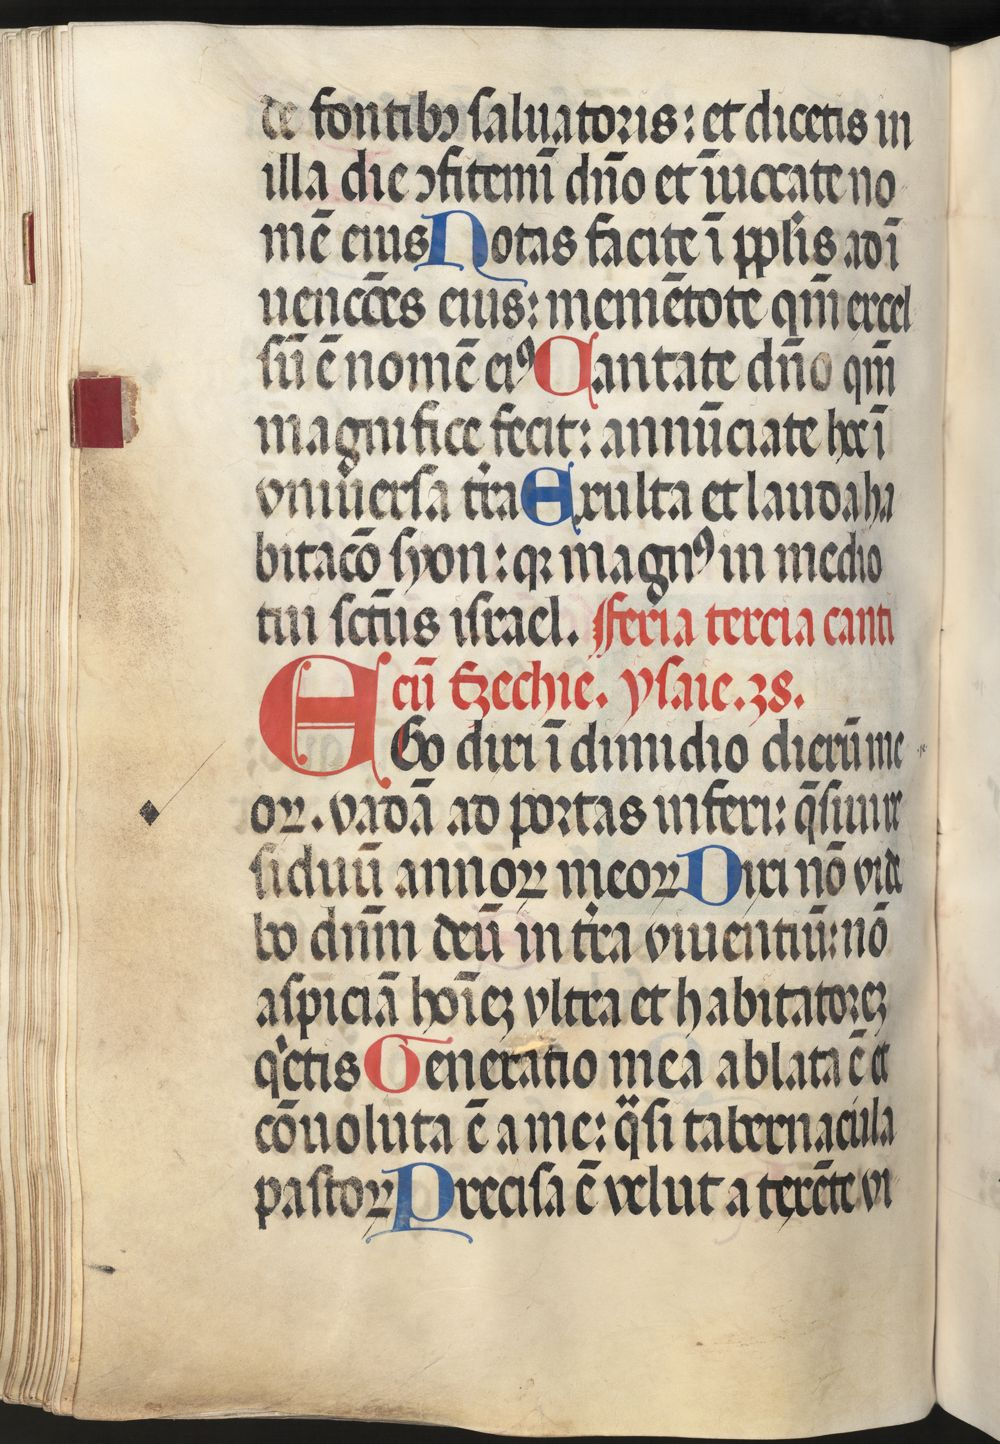 de fontibꝫ saluatoris: et dicetis in
illa die ꝯfitemī dño et īuocate no
mē eius Notas facite ī pplis ad ī
uencōes eius: memētote qm̄ excel
sū ē nomē eiꝰ Cantate dño qm̄
magnifice fecit: annūciate hoc ī
vniuersa tr̄a Exulta et lauda ha
bitacō syon: qꝛ magnꝰ in medio
tui sctūs israel. Feria tercia canti
cū Ezechie. ysaie. 38.
EGo dixi ī dimidio dierū me
oꝝ. vadā ad portas inferi: q̄siui re
siduū annoꝝ meoꝝ Dixi nō vide
bo dnm̄ deū in tr̄a viuentiū: nō
aspiciā hoīeꝫ vltra et habitatoreꝫ
q'etis Generatio mea ablata ē et
cōuoluta ē a me: q̈si tabernacula
pastoꝝ Precisa ē velut a texēte vi